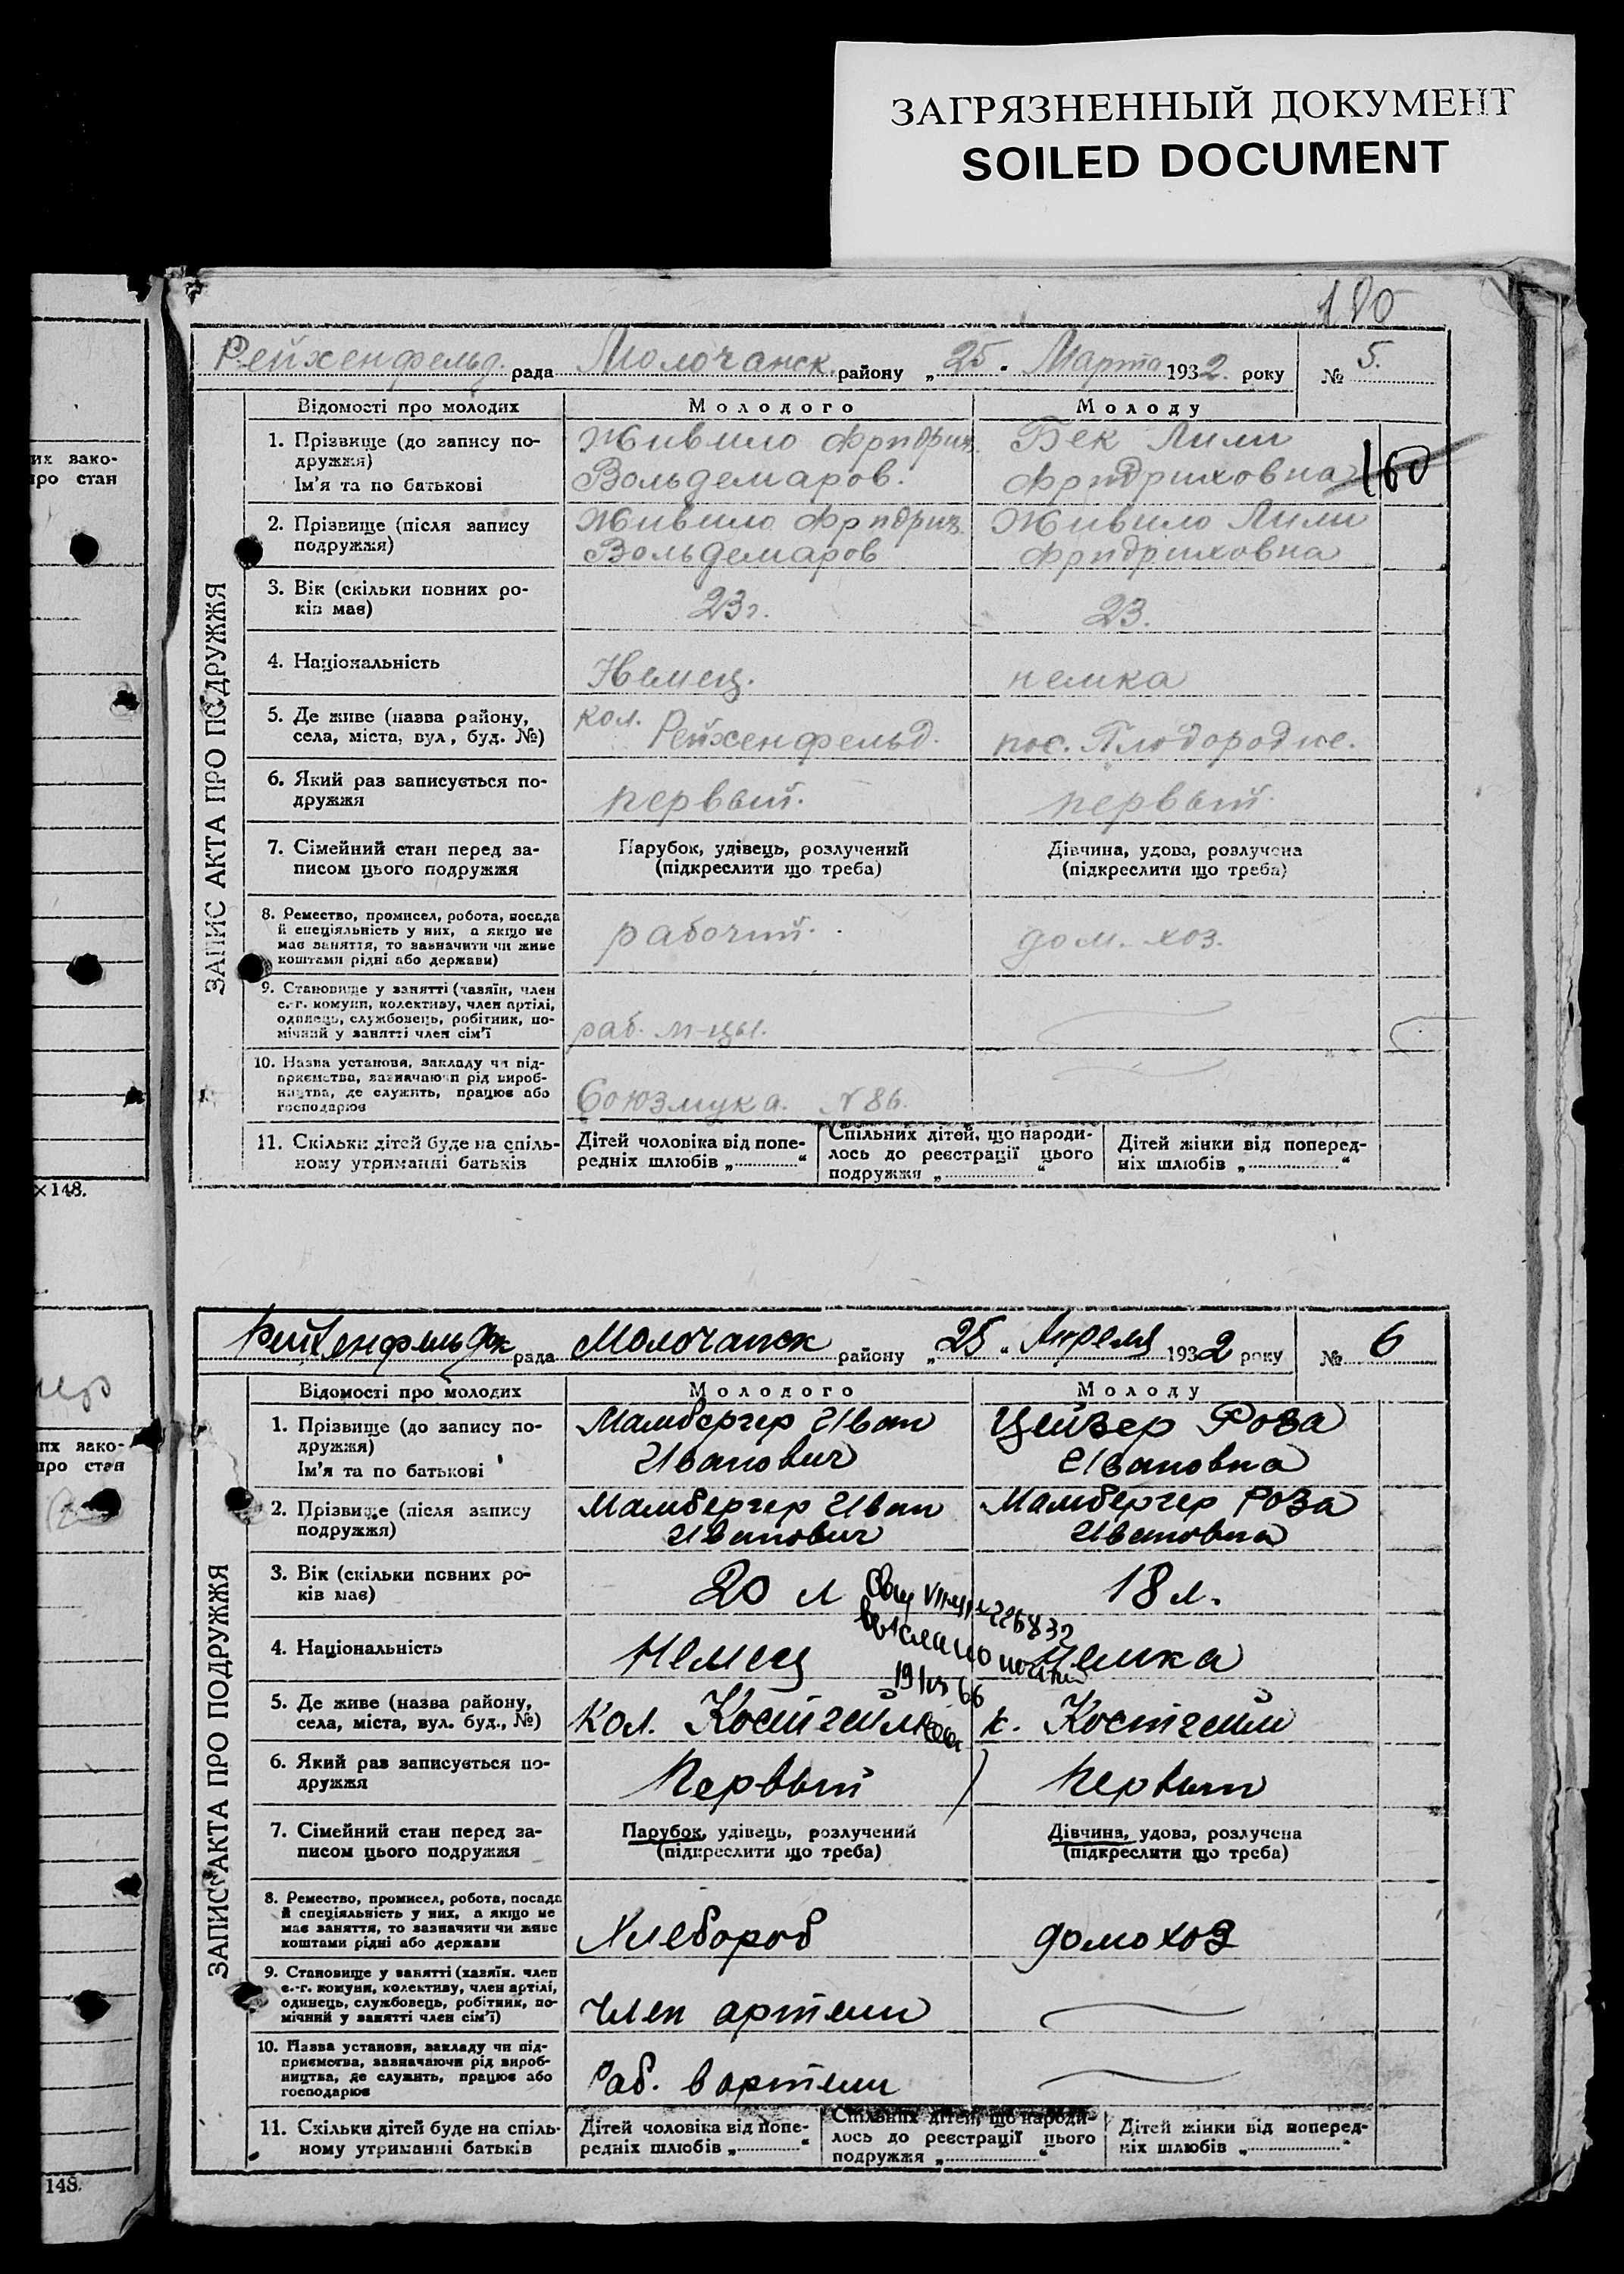 ЗАГРЯЗНЕННЫЙ ДОКУМЕНТ
SOILED DOCUMENT
180
Рейхенфельд. рада Молочанск. району „25." Марта 1932. року № 5.
ЗАПИС АКТА ПРО ПОДРУЖЖЯ
Відомості про молодих Молодого Молоду
1. Прізвище (до запису по-
дружжя)
Ім’я та по батькові
Живило Фридрих.
Вольдемаров.
Бек Лили
Фридриховна
160
2. Прізвище (після запису
подружжя)
Живило Фридрих.
Вольдемаров
Живило Лили
Фридриховна
3. Вік (скільки повних ро-
ків має)
23г. 23.
4. Національність Немец. немка
5. Де живе (назва району,
села, міста, вул, буд. №)
кол.
Рейхенфельд. пос. Плодородие.
6. Який раз записується по-
дружжя
первый. первый.
7. Сімейний стан перед за-
писом цього подружжя
Парубок, удівець, розлучений
(підкреслити що треба)
Дівчина, удова, розлучена
(підкреслити що треба)
8. Ремество, промисел, робота, посада
й спеціяльність у них, а якщо не
має заняття, то зазначити чи живе
коштами рідні або держави)
рабочий. дом. хоз.
9. Становище у занятті (хазяїн, член
с.-г. комуни, колективу, член артілі,
одинець, службовець, робітник, по-
мічний у занятті член сім’ї
раб. м-цы.
10. Назва установи, закладу чи під-
приємства, зазначаючи рід вироб-
ництва, де служить, працює або
господарює
Союзмука. № 86.
11. Скільки дітей буде на спіль-
ному утриманні батьків
Дітей чоловіка від попе-
редніх шлюбів „............“
Спільних дітей, що народи-
лось до реєстрації цього
подружжя „............“
Дітей жінки від поперед-
ніх шлюбів „............“
×148.
рада Молочанск району „25" Апреля 1932 року № 6
ЗАПИС АКТА ПРО ПОДРУЖЖЯ
Відомості про молодих Молодого Молоду
1. Прізвище (до запису по-
дружжя)
Ім’я та по батькові
Мамбергер Иван
Иванович
Цейзер Роза
Ивановна
2. Прізвище (після запису
подружжя)
Мамбергер Иван
Иванович
Мамбергер Роза
Ивановна
3. Вік (скільки повних ро-
ків має)
20 л 18 л.
4. Національність Немец немка
выслано
5. Де живе (назва району,
села, міста, вул. буд., №)
Кол. к. Костгейм
6. Який раз записується по-
дружжя
Первый Первый
7. Сімейний стан перед за-
писом цього подружжя
Парубок, удівець, розлучений
(підкреслити що треба)
Дівчина, удова, розлучена
(підкреслити що треба)
8. Ремество, промисел, робота, посада
й спеціяльність у них, а якщо не
має заняття, то зазначити чи живе
коштами рідні або держави
Хлебороб домохоз
9. Становище у занятті (хазяїн. член
с.-г. комуни, колективу, член артілі,
одинець, службовець, робітник, по-
мічний у занятті член сім’ї)
Член артели
10. Назва установи, закладу чи під-
приємства, зазначаючи рід вироб-
ництва, де служить, працює або
господарює
Раб. в артели
11. Скільки дітей буде на спіль-
ному утриманні батьків
Дітей чоловіка від попе-
редніх шлюбів „............“
Спільних дітей, що народи-
лось до реєстрації цього
подружжя „............“
Дітей жінки від поперед-
ніх шлюбів „............“
148.